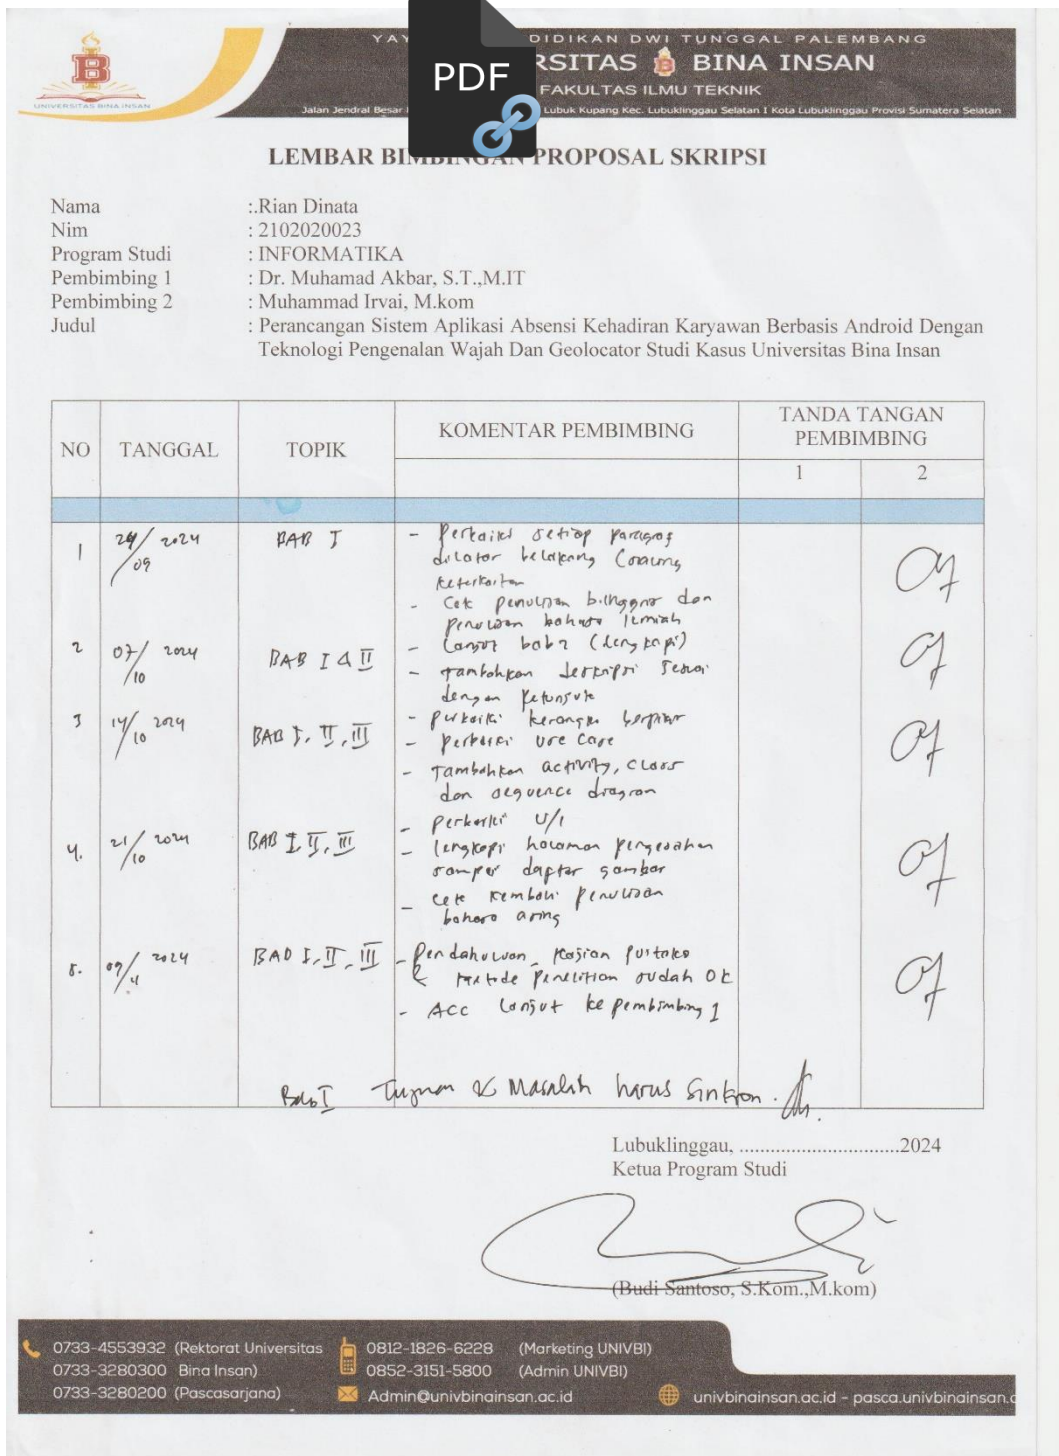 YAY DIDIKAN DWI TUNGGAL PALEMBANG
RSITAS BINA INSAN
FAKULTAS ILMU TEKNIK
Jalan Jendral Besar Lubuk Kupang Kec. Lubuklinggau Selatan I Kota Lubuklinggau Provisi Sumatera Selatan
B
UNIVERSITAS BINA INSAN
PDF
LEMBAR BIMBINGAN PROPOSAL SKRIPSI
Nama :.Rian Dinata
Nim : 2102020023
Program Studi : INFORMATIKA
Pembimbing 1 : Dr. Muhamad Akbar, S.T.,M.IT
Pembimbing 2 : Muhammad Irvai, M.kom
Judul : Perancangan Sistem Aplikasi Absensi Kehadiran Karyawan Berbasis Android Dengan
Teknologi Pengenalan Wajah Dan Geolocator Studi Kasus Universitas Bina Insan
NO TANGGAL TOPIK KOMENTAR PEMBIMBING TANDA TANGAN PEMBIMBING
1 2
1 24/09 2024 BAB I - Perbaiki setiap paragraf
dilatar belakang
keterkaitan
- Cek penulisan dan
penulisan bahasa ilmiah
- Lanjut bab 2 (lengkapi)
2 07/10 2024 BAB I & II - Tambahkan deskripsi sesuai
dengan petunjuk
3 14/10 2024 BAB I, II, III - perbaiki kerangka berpikir
- perbaiki use case
- Tambahkan activity, class
dan sequence diagram
4. 21/10 2024 BAB I, II, III - perbaiki U/I
- lengkapi halaman pengesahan
sampai daftar gambar
- cek kembali penulisan
bahasa asing
5. 2024 BAB I, II, III - Pendahuluan, Kajian Pustaka
& Metode penelitian sudah OK
- ACC lanjut ke pembimbing 1
Bab I Tujuan & Masalah harus sinkron.
Lubuklinggau, ................................2024
Ketua Program Studi
(Budi Santoso, S.Kom.,M.kom)
0733-4553932 (Rektorat Universitas
0733-3280300 Bina Insan)
0733-3280200 (Pascasarjana)
0812-1826-6228 (Marketing UNIVBI)
0852-3151-5800 (Admin UNIVBI)
Admin@univbinainsan.ac.id
univbinainsan.ac.id - pasca.univbinainsan.